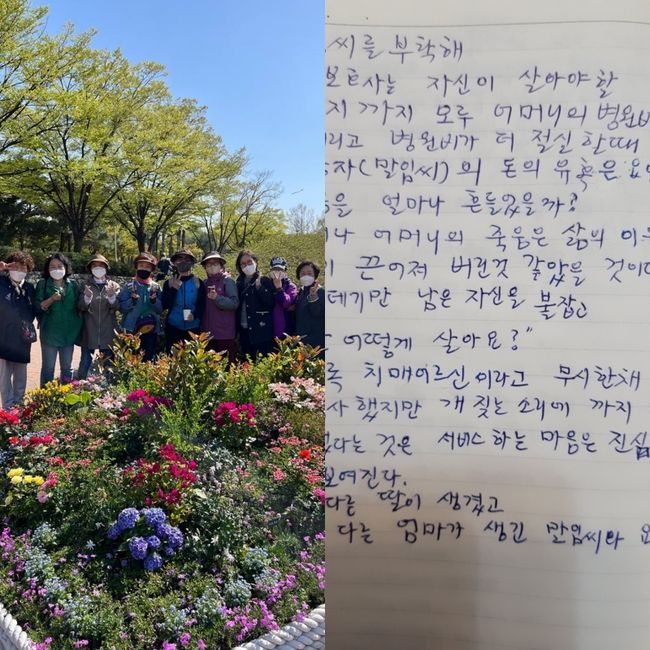 씨를 부탁해
보호사는 자신이 살아야 할
지 까지 모두 어머니의 병원비
리고 병원비가 더 절실 한때
자(말임씨) 의 돈의 유혹은 요양
을 얼마나 흔들었을까?
나 어머니의 죽음은 삶의 이유
끈어져 버린것 같았을 것이다
데기만 남은 자신을 붙잡고
어떻게 살아요?"
록 치매어르신 이라고 무시한채
사 했지만 개 짖는 소리에 까지
있다는 것은 서비스 하는 마음은 진심
보여진다.
다른 딸이 생겼고
다른 엄마가 생긴 말임씨와 요